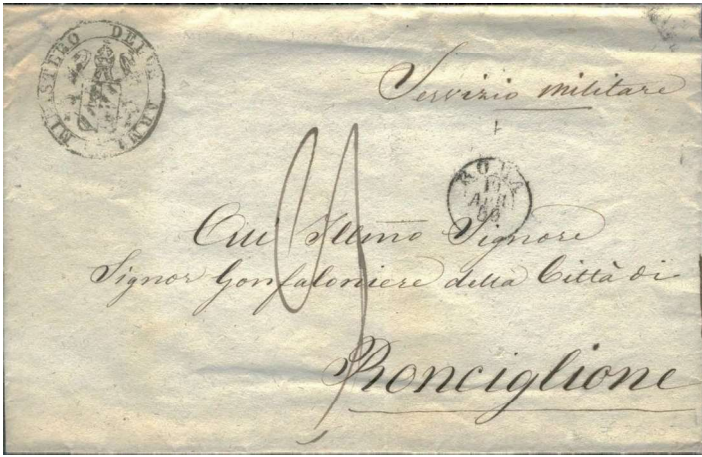 MINISTERO DELLE ARMI
Servizio militare
ROMA
APR
Illmo Signore
Signor Gonfaloniere della Città di
Ronciglione